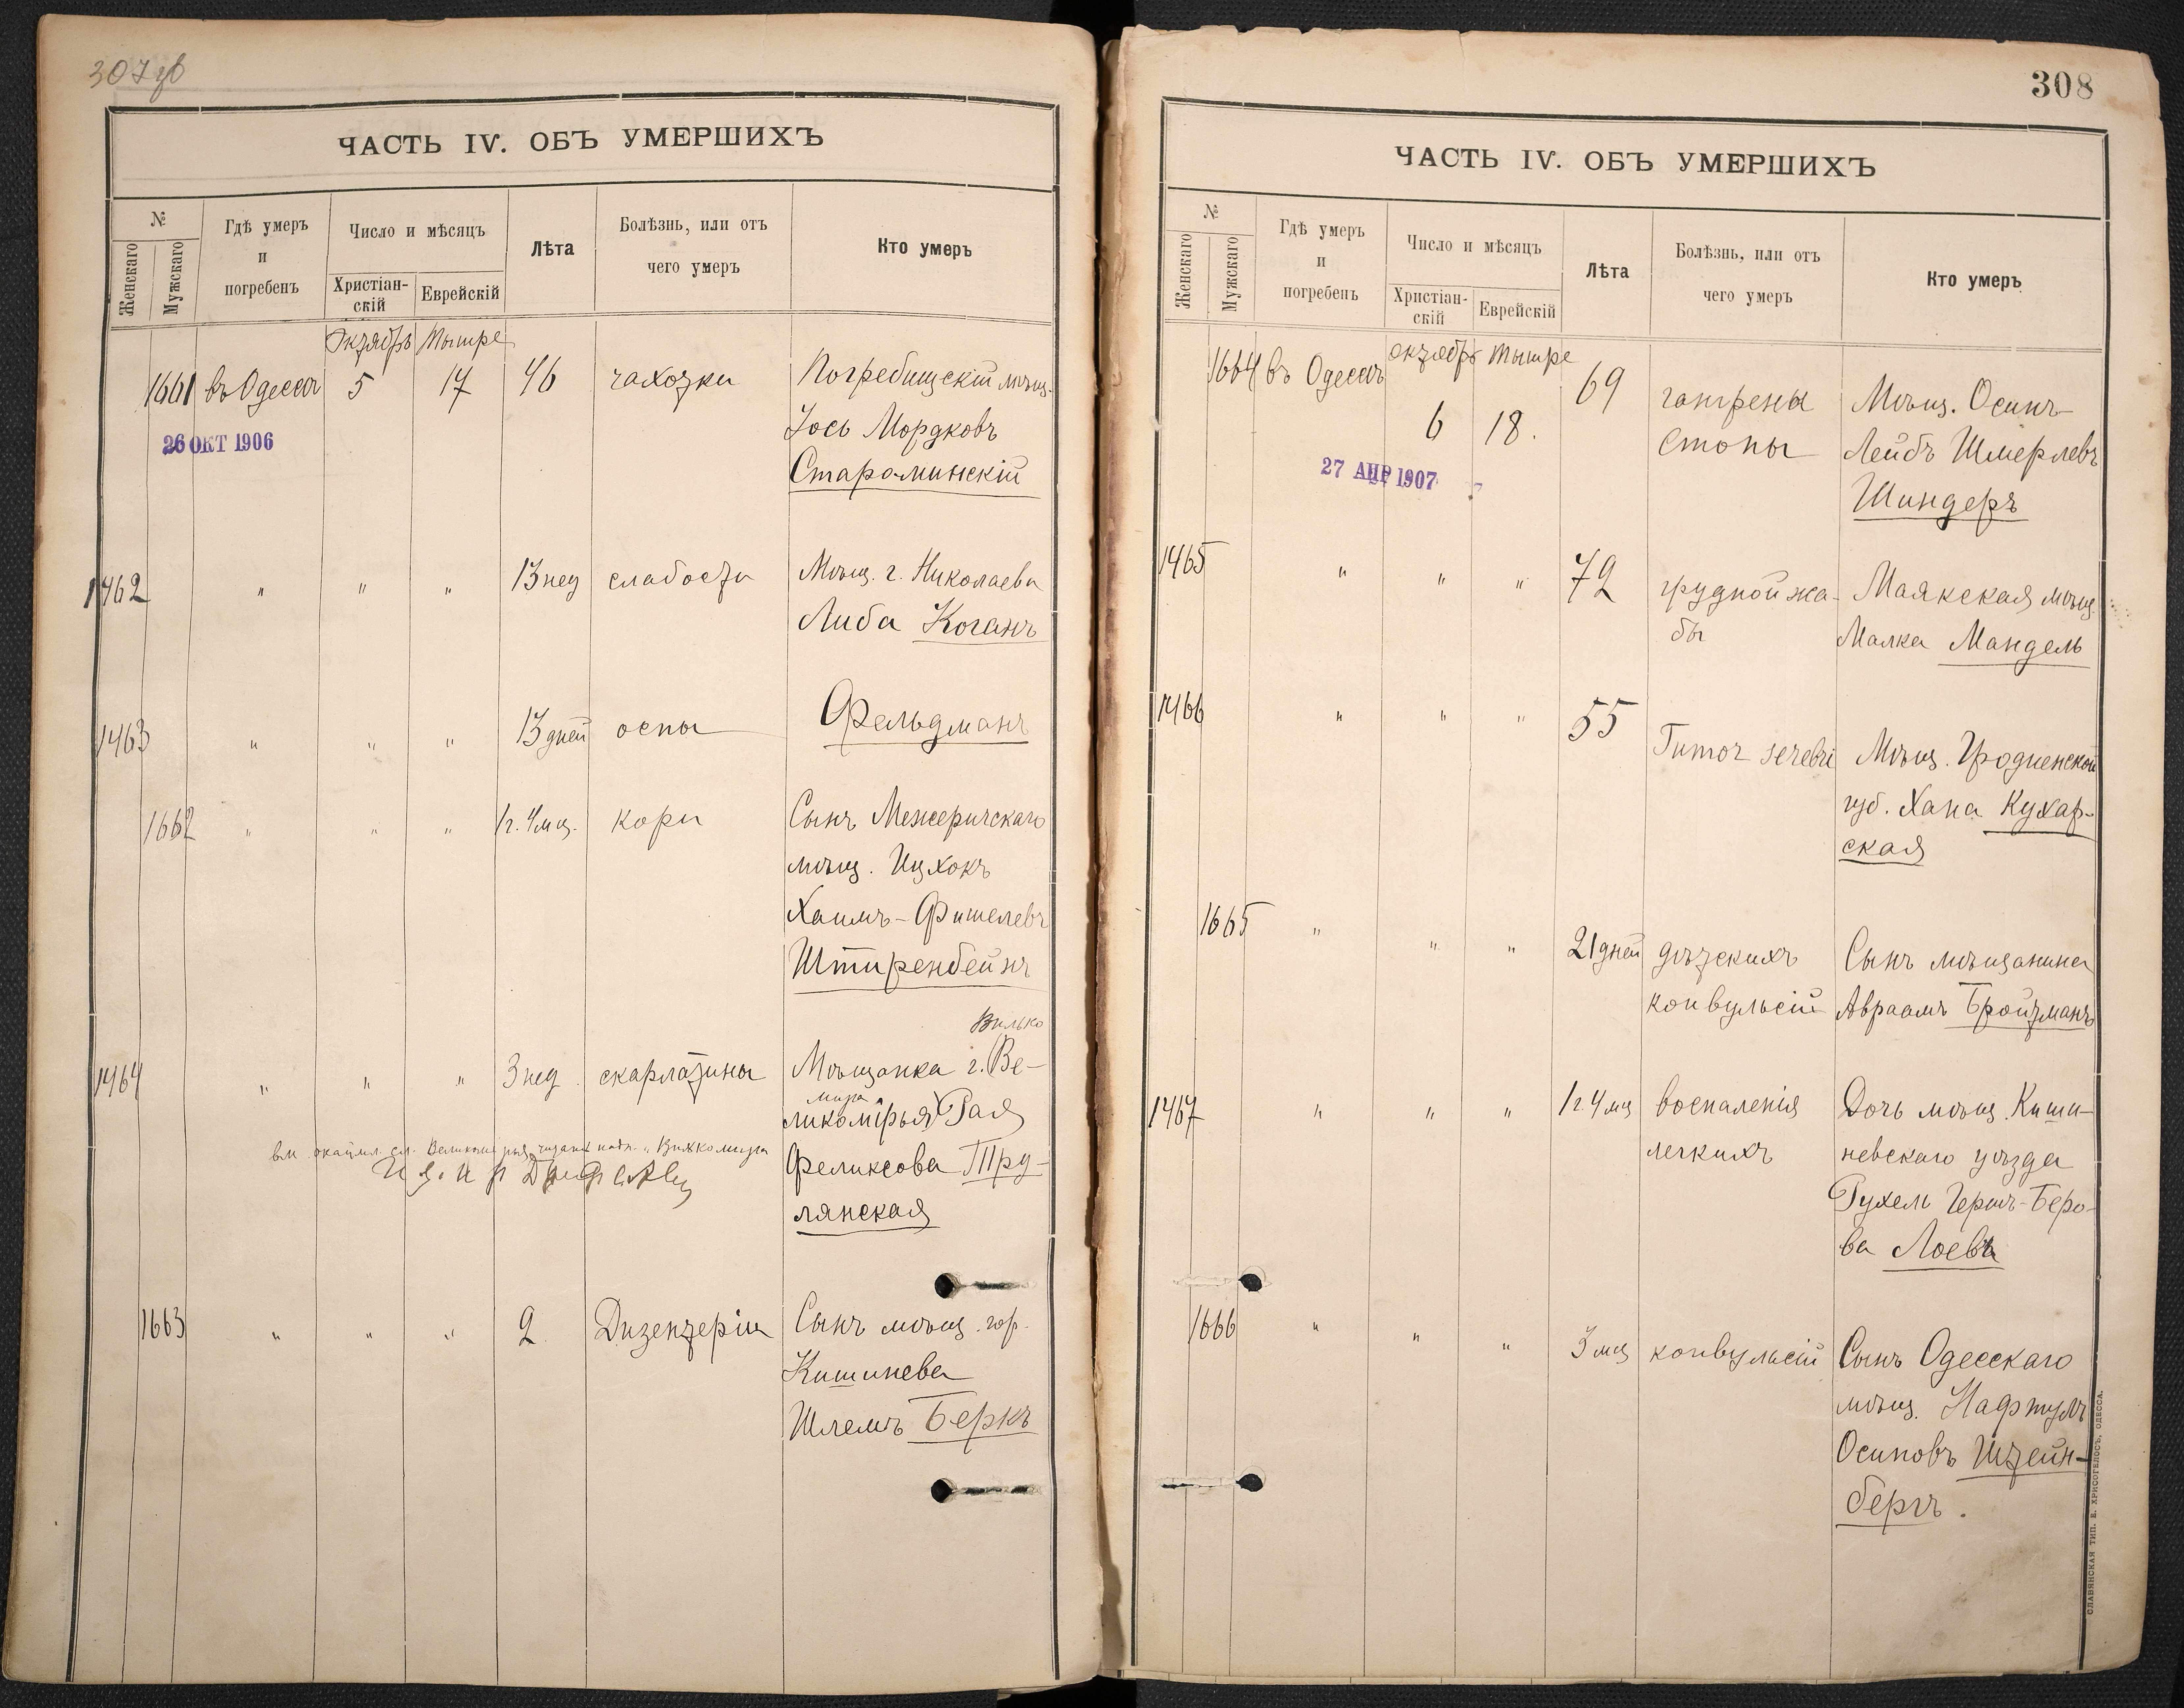 307 об
ЧАСТЬ IV. ОБЪ УМЕРШИХЪ
№
Женскаго
Мужскаго
Гдѣ умеръ
и
погребенъ
Число и мѣсяцъ
Христіан-
скій
Еврейскій
Лѣта
Болѣзнь, или отъ
чего умеръ
Кто умеръ
Октябрь Тышре
1661 въ Одессѣ 5 17 46 чахотки Погребищскій мѣщ.
Іось Мордковъ
26 ОКТ 1906
Староминскій
1462 " " " 13 нед слабости Мѣщ. г. Николаева
Либа Коганъ
1463 " " " 13 дней оспы Фельдманъ
1662 " " " 1 г. 4 мц. кори Сынъ Межеричскаго
мѣщ. Ицхокъ
Хаимъ-Фишелевъ
Штиренбейнъ
Вилько
1464 " " " 3 нед. скарлатины Мѣщанка г. Ве-
мира
ликомірья Рая
Феликсова Тру-
лянская
1663 " " " 2 Дизентеріи Сынъ мѣщ. гор.
Кишинева
Шлемъ Беркъ
308
ЧАСТЬ IV. ОБЪ УМЕРШИХЪ
№
Женскаго
Мужскаго
Гдѣ умеръ
и
погребенъ
Число и мѣсяцъ
Христіан-
скій
Еврейскій
Лѣта
Болѣзнь, или отъ
чего умеръ
Кто умеръ
октябрь Тышре
1664 въ Одессѣ 6 18. 69 гангрены Мѣщ. Осипъ-
стопы Лейбъ Шмерлевъ
27 АПР 1907
Шиндеръ
1465 " " " 72 грудной жа- Маякская мѣщ.
бы Малка Мандель
1466 " " " 55 Tumor cerebri Мѣщ. Гродненской
губ. Хана Кухар-
ская
1665 " " " 21 дней дѣтскихъ Сынъ мѣщанина
конвульсій Авраамъ Бройтманъ
1467 " " " 1 г. 4 мц воспаленія Дочь мѣщ. Киши-
легкихъ невскаго уѣзда
Рухель Гершъ-Беро-
ва Лоевъ
1666 " " " 3 мц конвульсій Сынъ Одесскаго
мѣщ. Нафтулъ
Осиповъ Штейн-
бергъ.
СЛАВЯНСКАЯ ТИП. Е. ХРИСОГЕЛОСЪ, ОДЕССА.